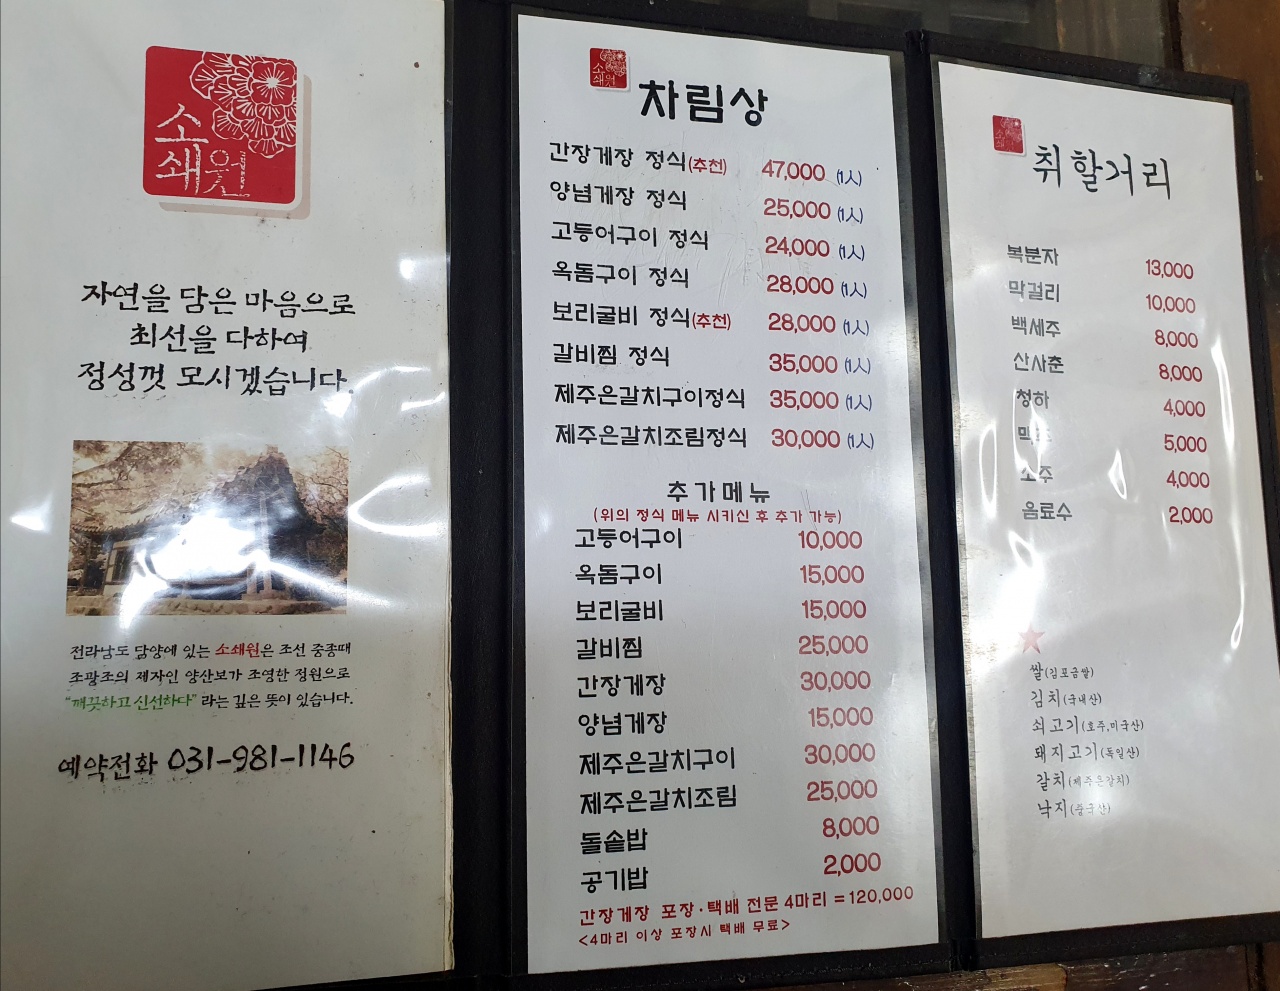 소
쇄원
자연을 담은 마음으로
최선을 다하여
정성껏 모시겠습니다.
전라남도 담양에 있는 소쇄원은 조선 중종때
조광조의 제자인 양산보가 조영한 정원으로
"깨끗하고 신선하다" 라는 깊은 뜻이 있습니다.
예약전화 031-981-1146
소
쇄원
차림상
간장게장 정식(추천) 47,000 (1人)
양념게장 정식 25,000 (1人)
고등어구이 정식 24,000 (1人)
옥돔구이 정식 28,000 (1人)
보리굴비 정식(추천) 28,000 (1人)
갈비찜 정식 35,000 (1人)
제주은갈치구이정식 35,000 (1人)
제주은갈치조림정식 30,000 (1人)
추가메뉴
(위의 정식 메뉴 시키신 후 추가 가능)
고등어구이 10,000
옥돔구이 15,000
보리굴비 15,000
갈비찜 25,000
간장게장 30,000
양념게장 15,000
제주은갈치구이 30,000
제주은갈치조림 25,000
돌솥밥 8,000
공기밥 2,000
간장게장 포장·택배 전문 4마리 = 120,000
<4마리 이상 포장시 택배 무료>
취할거리
복분자 13,000
막걸리 10,000
백세주 8,000
산사춘 8,000
청하 4,000
5,000
소주 4,000
음료수 2,000
쌀(김포금쌀)
김치(국내산)
쇠고기(호주,미국산)
돼지고기(독일산)
갈치(제주은갈치)
낙지(중국산)